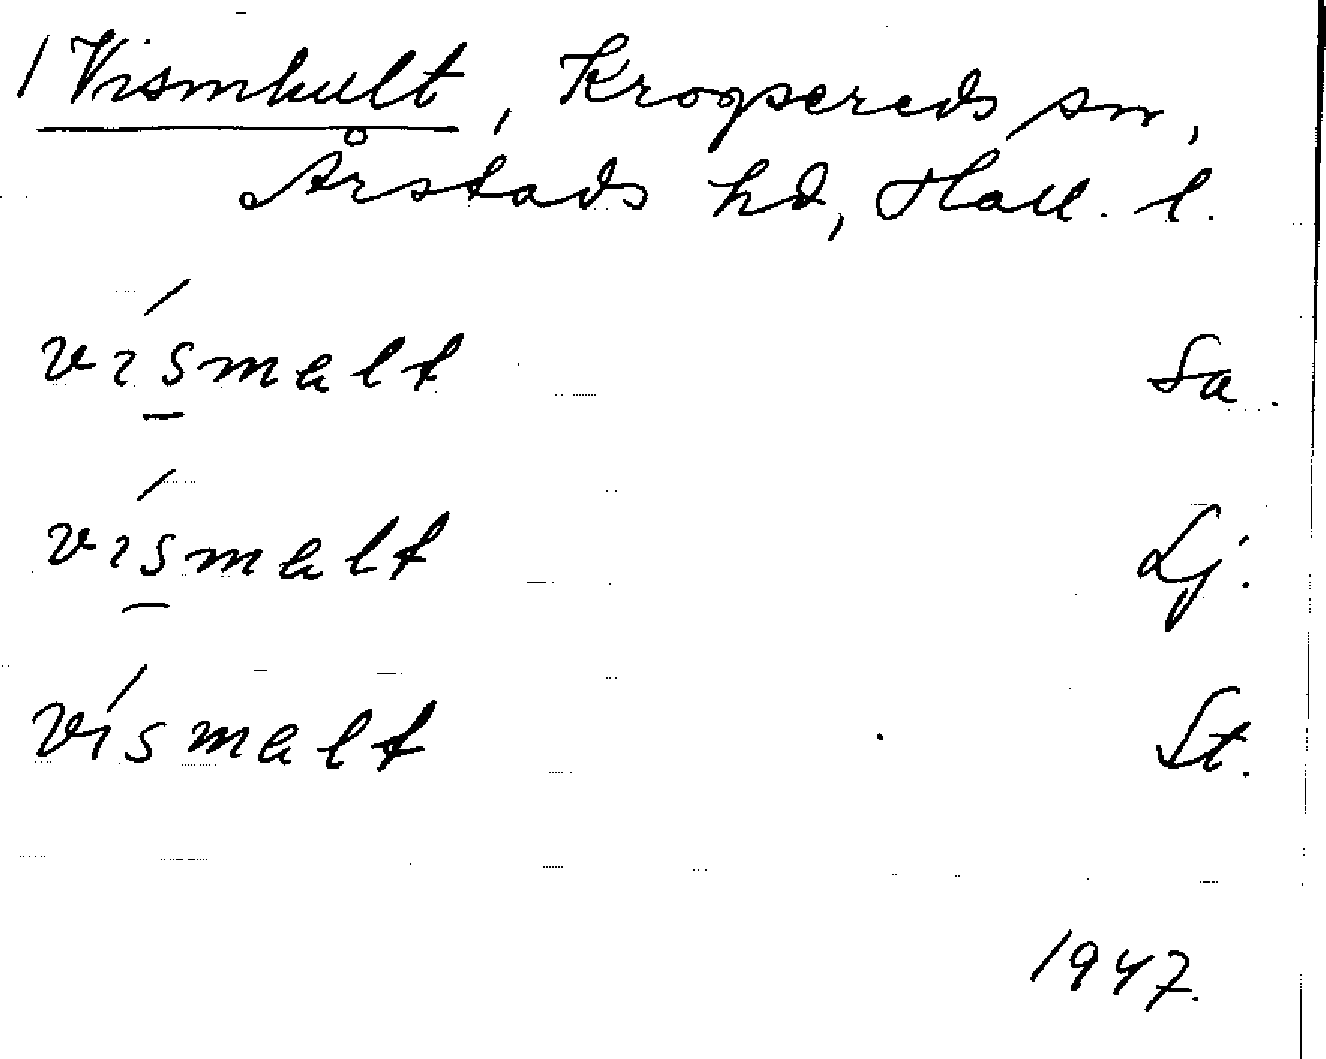 / Vismhult, Krogsereds sn,
Årstads hd, Hall. l.
vísmalt Sa.
vísmalt Lj.
vísmalt St.
1947.